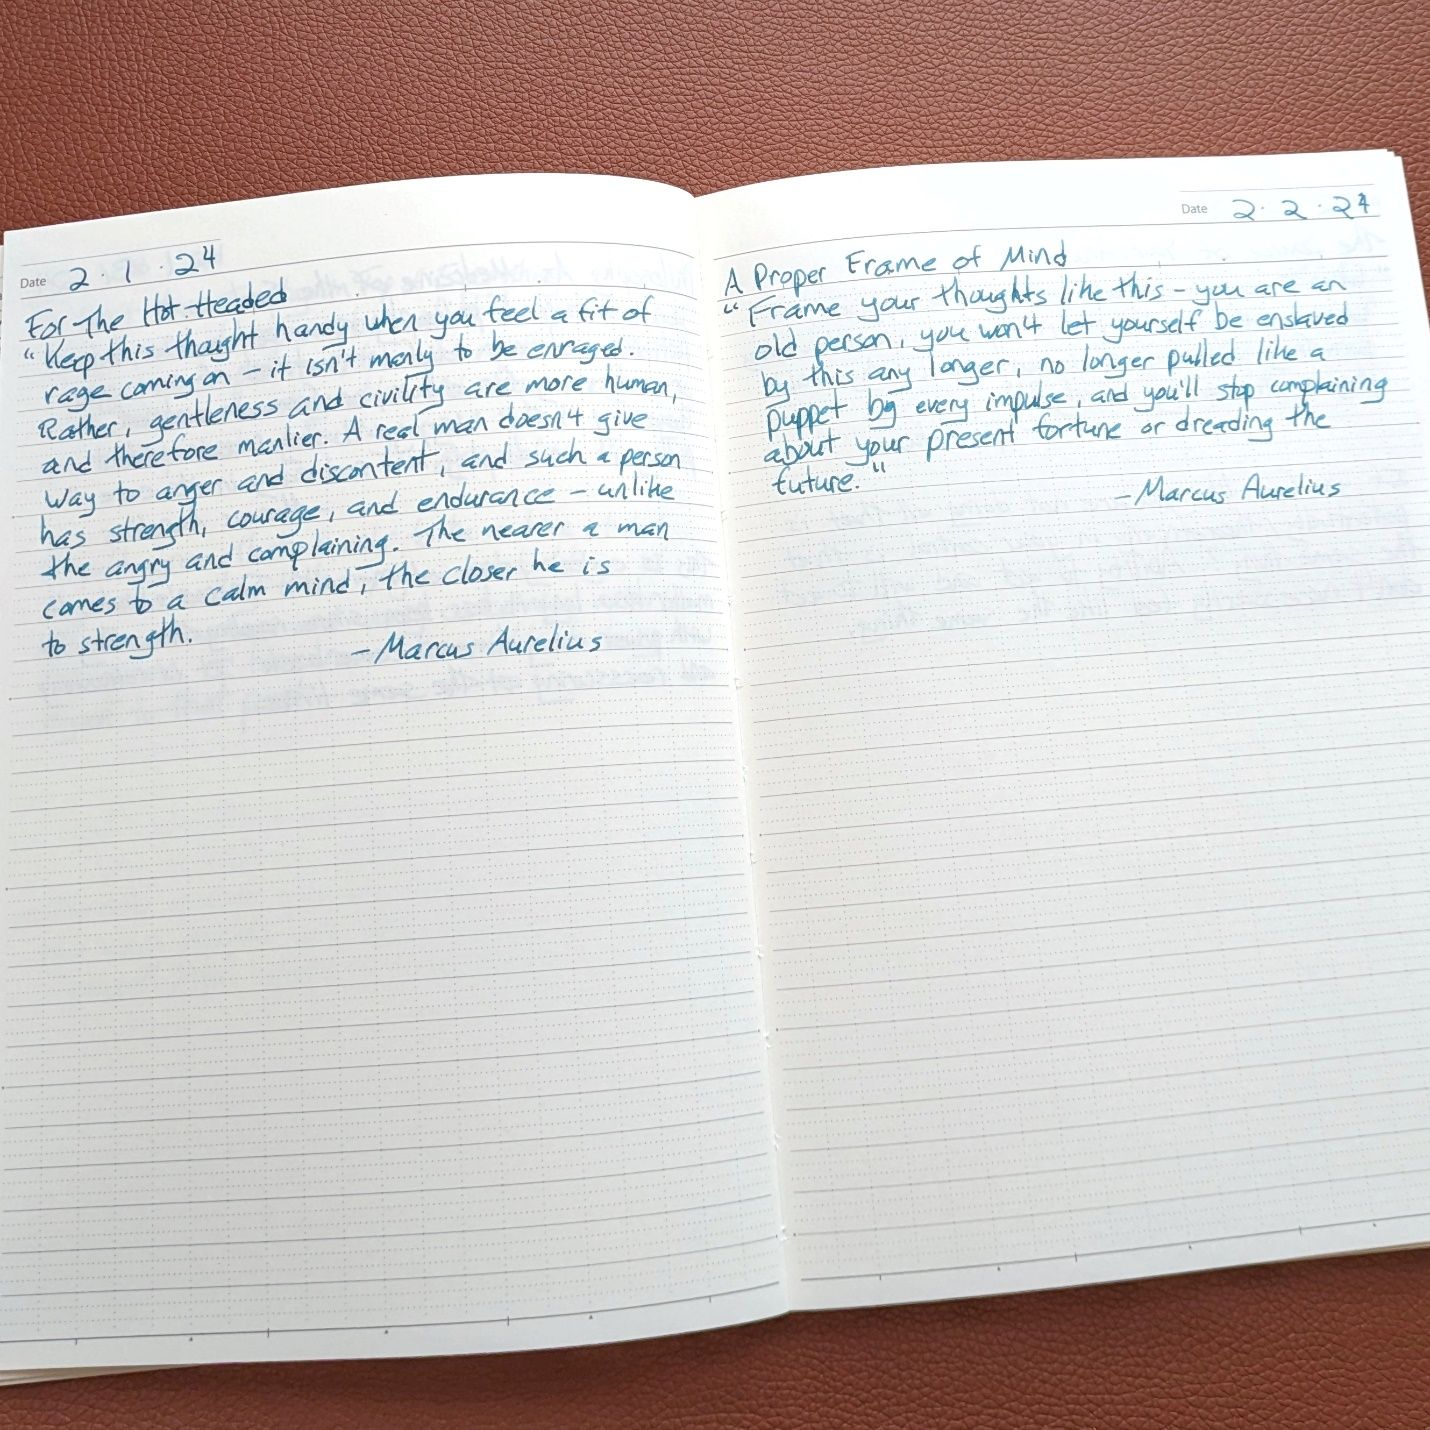 Date 2 · 1 · 24
For The Hot-Headed
"Keep this thought handy when you feel a fit of
rage coming on - it isn't manly to be enraged.
Rather, gentleness and civility are more human,
and therefore manlier. A real man doesn't give
way to anger and discontent, and such a person
has strength, courage, and endurance - unlike
the angry and complaining. The nearer a man
comes to a calm mind, the closer he is
to strength.
- Marcus Aurelius
Date 2 · 2 · 24
A Proper Frame of Mind
"Frame your thoughts like this - you are an
old person, you won't let yourself be enslaved
by this any longer, no longer pulled like a
puppet by every impulse, and you'll stop complaining
about your present fortune or dreading the
future."
- Marcus Aurelius